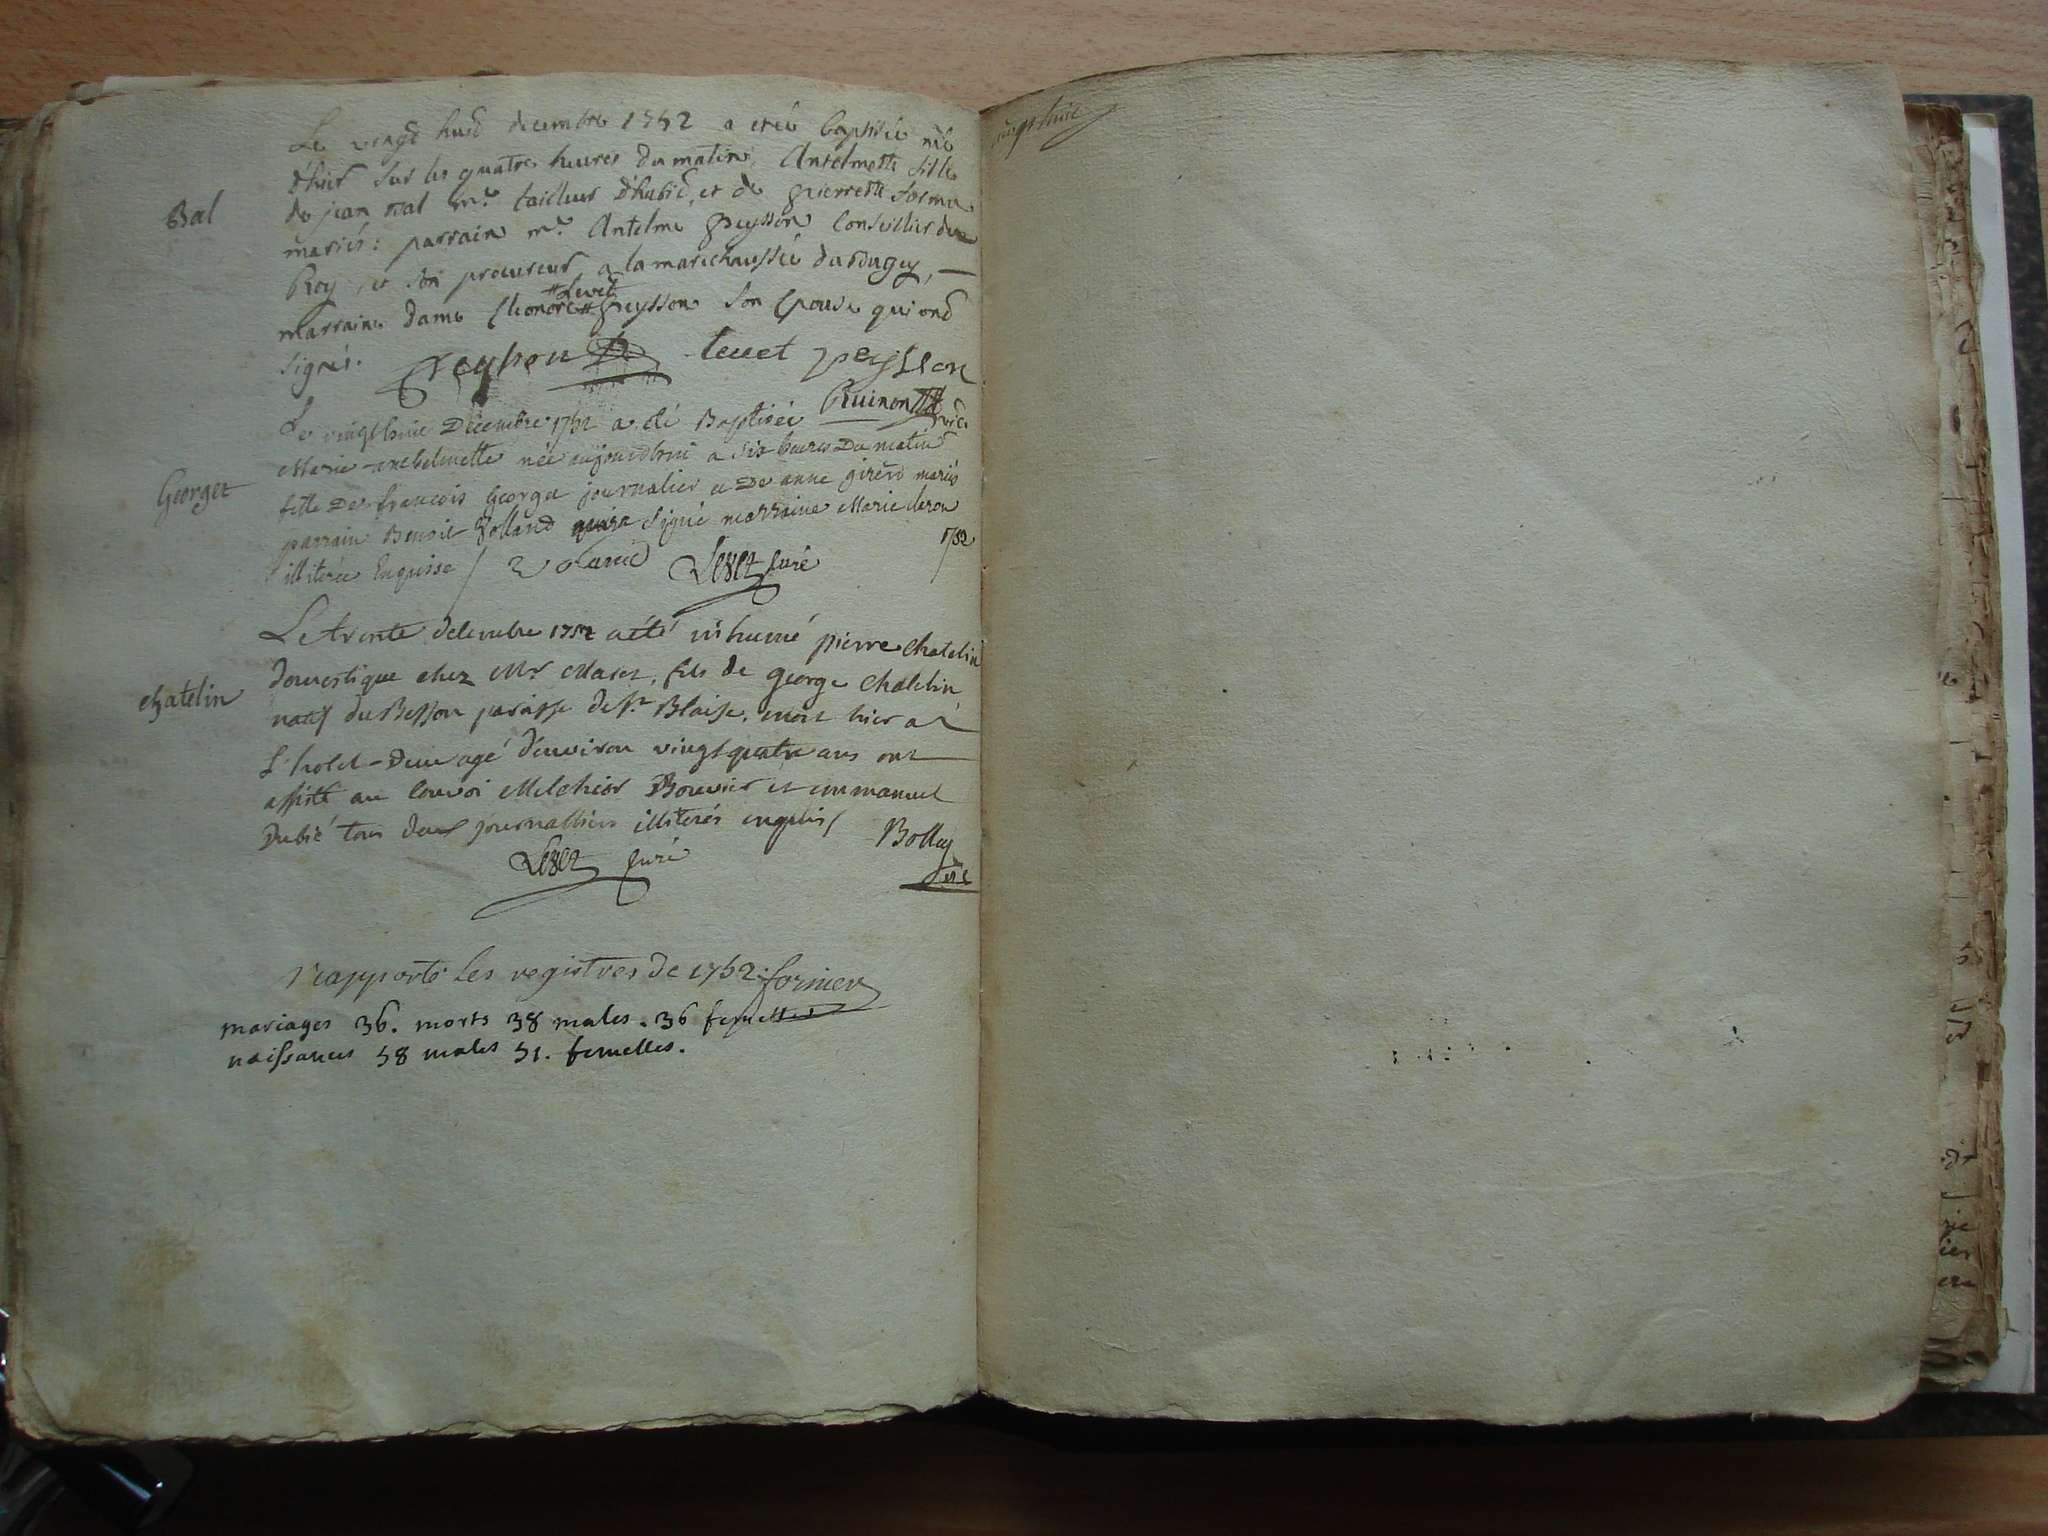 Le vingt huit decembre 1752 a etée baptisée née
d'hier sur les quatre heures du matin, Antelmette fille
Bal
de jean Bal mr. tailleur d'habit, et de pierrette forma
mariés: parrain mr. Antelme peysson Conseiller du
Roy, et son procureur a la marechaussée du Bugey,
#Levet
marraine dame Eleonore # peysson son epouse qui ont
signés. peysson levet peysson
Ruinon vice
Le vingt huit Decembre 1752 a été Baptisée
Marie anthelmette née aujourdhui a six heures Du matin
Georget
fille De francois George journalier et De anne girerd mariés
parrain Benoit Volland qui a signé marraine Marie
illiterée Enquise / Volland Levet Curé
1752
Le trente decembre 1752 a été inhumé pierre chatelin
domestique chez Mr Maret, fils de george chatelin
chatelin
natif du Besson paroisse de St. Blaise, mort hier a
L'hotel-Dieu agé d'environ vingt quatre ans ont
assisté au convoi Melchior Bouvier et emmanuel
Dubié tous deux journalliers illiterés enquis /
Levet Curé
Bolley
rapporté les registres de 1752. fornier
mariages 36. morts 38 males. 36 femelles
naissances 58 males 51. femelles.
vingt huit